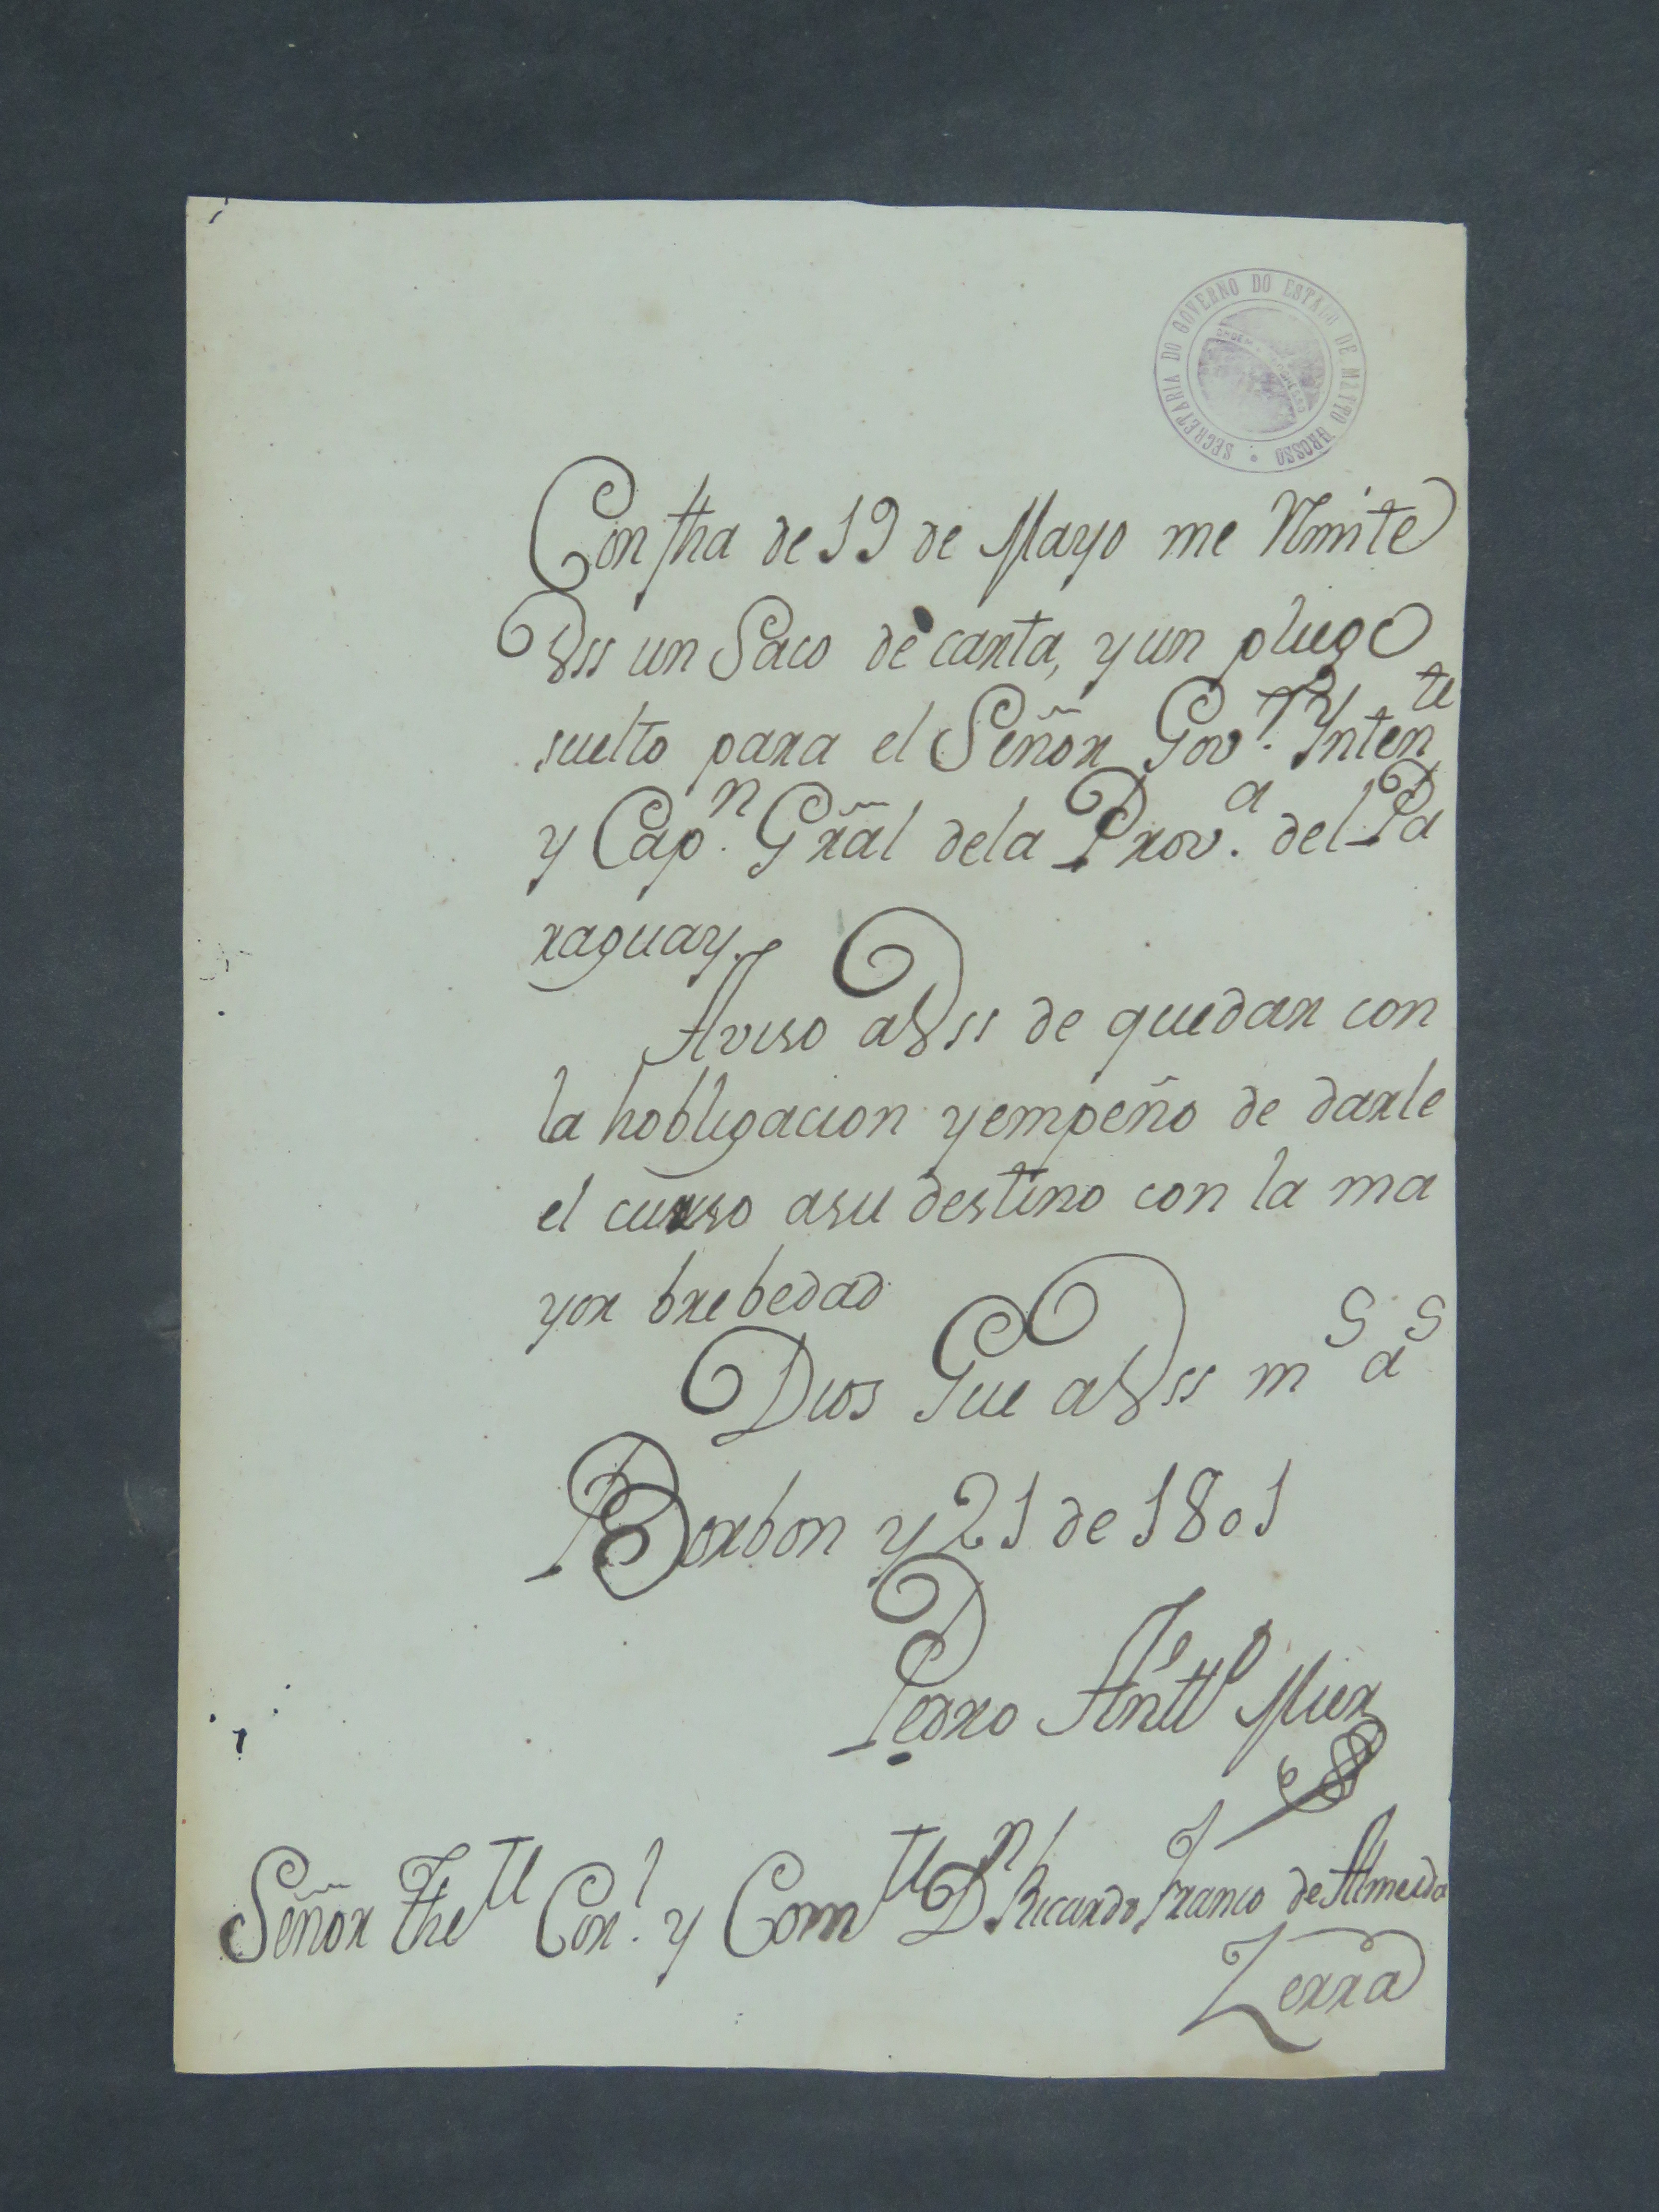 SECRETARIA DO GOVERNO DO ESTADO DE MATTO GROSSO
ORDEM E PROGRESSO
Con fha de 19 de Mayo me Rmite
Vss un Saco de carta, y un pliego
suelto para el Señor Gov.r Inten.te
y Cap.n Gñral dela Prov.a del Pa
raguay.
Aviso a Vss de quedar con
la hobligacion y empeño de darle
el curso asu destino con la ma
yor brebedad
Dios Gue a Vss m.s a.s
Borbon y 21 de 1801
Pedro Antto Mier
Señor The.te Cor.l y Com.te D.n Ricardo Franco de Almeida
Zerra